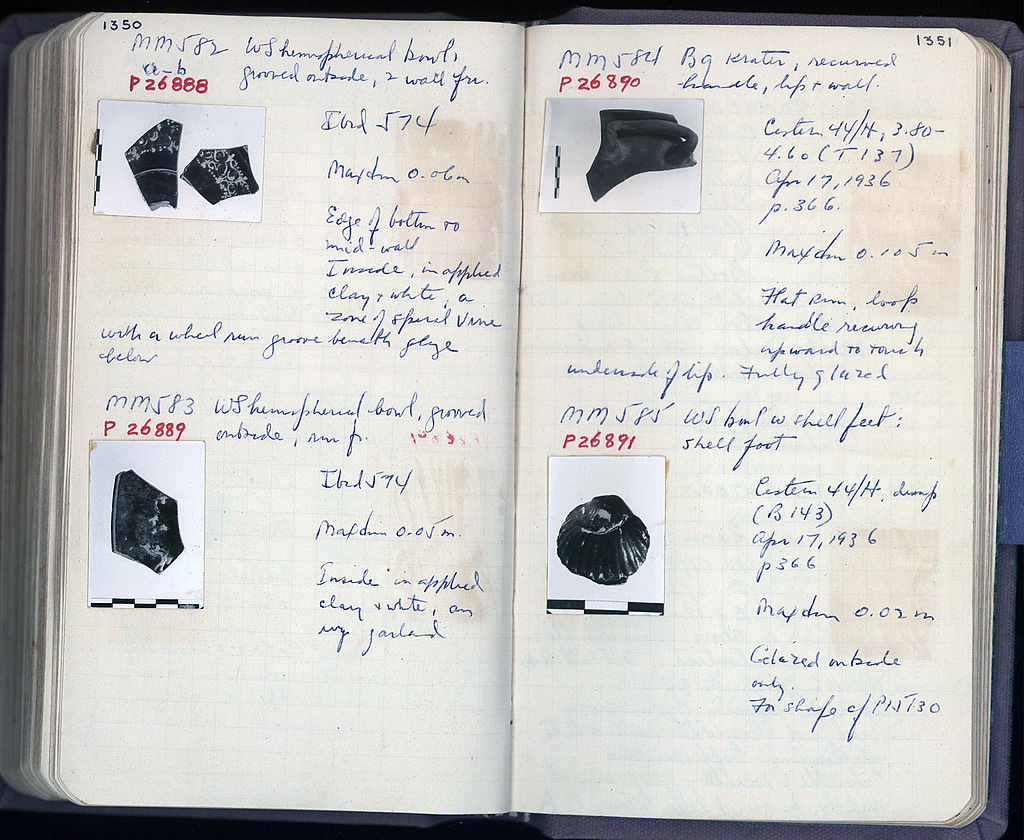 1350
MM582 WS hemispherical bowl,
a-b grooved outside, 2 wall frr.
P 26888
Ibid 574
Max dim 0.06m
Edge of bottom to
mid-wall
Inside, in applied
clay + white, a
zone of spiral vine
with a wheel run groove beneath glaze
below
MM583 WS hemispherical bowl, grooved
P 26889 outside, rim fr.
Ibid 574
Max dim 0.05 m.
Inside in applied
clay + white, an
ivy garland
1351
MM584 BG Krater, recurved
P 26890 handle, lip + wall.
Cistern 44/H, 3.80-
4.60 (T 137)
Apr 17, 1936
p. 366.
Max dim 0.105 m
Flat rim, loop
handle recurving
upward to touch
underside of lip. Fully glazed
MM585 WS bowl w shell feet:
P26891 shell foot
Cistern 44/H, dump
(B 143)
Apr 17, 1936
p 366
Max dim 0.02 m
Glazed outside
only.
For shape cf PNT30